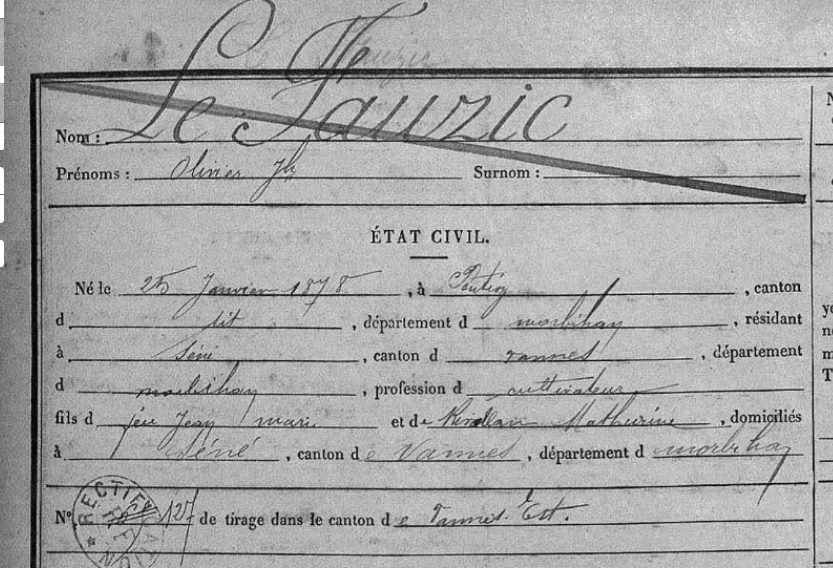 Nom : Le Fauzic
Prénoms : Olivier Jh Surnom :
ÉTAT CIVIL.
Né le 25 Janvier 1878, à Pontivy, canton
d dit, département d morbihan, résidant
à Séné, canton d vannes, département
d morbihan, profession d cultivateur
fils d feu Jean marie et de Mathurine, domiciliés
à Séné, canton de Vannes, département d morbihan
N° 127 de tirage dans le canton de Vannes Est.